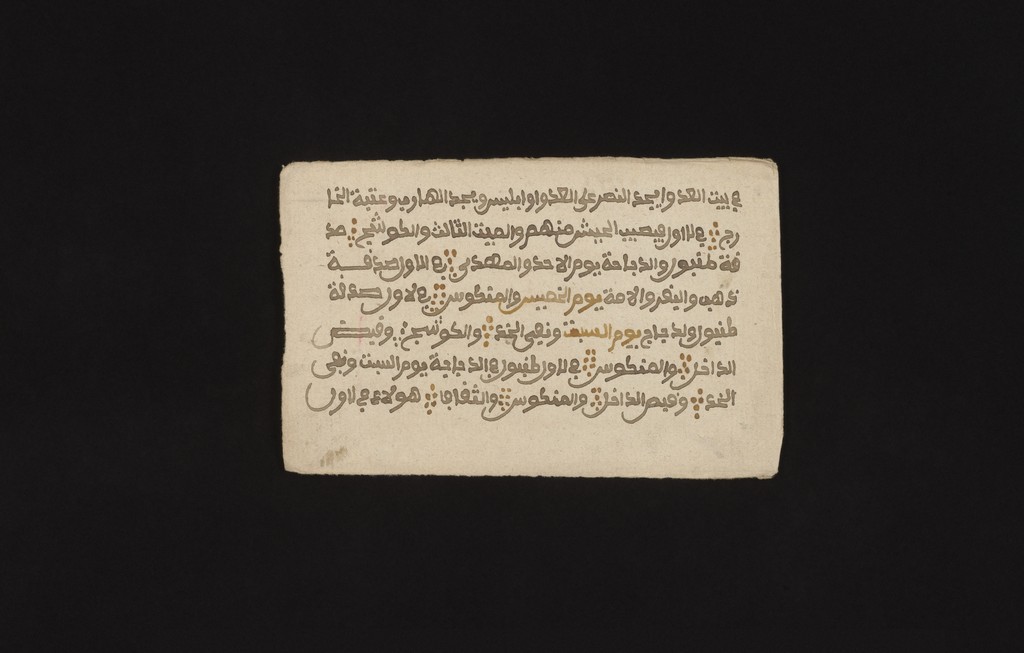 في بيت العدو ايجد النصر على العدو او ابليس ويجد الهارب وعتبة الخا
رج في الاول فيصيب العيش منهم والميت الثالث والكوشيج صد
قة طفبور والدجاجة يوم الاحد والمهدي في الاول صدقة
ذهب والبقر والامة يوم الخميس والمنكوس في الاول صدقة
طفيور والدجاج يوم السبت ونهي الخد والكوشيج وقبض
الداخل والمنكوس في الاول طفيور في الدجاجة يوم السبت ونهي
الخد وقبض الداخل والمنكوس والثقاف هولاء في الاول